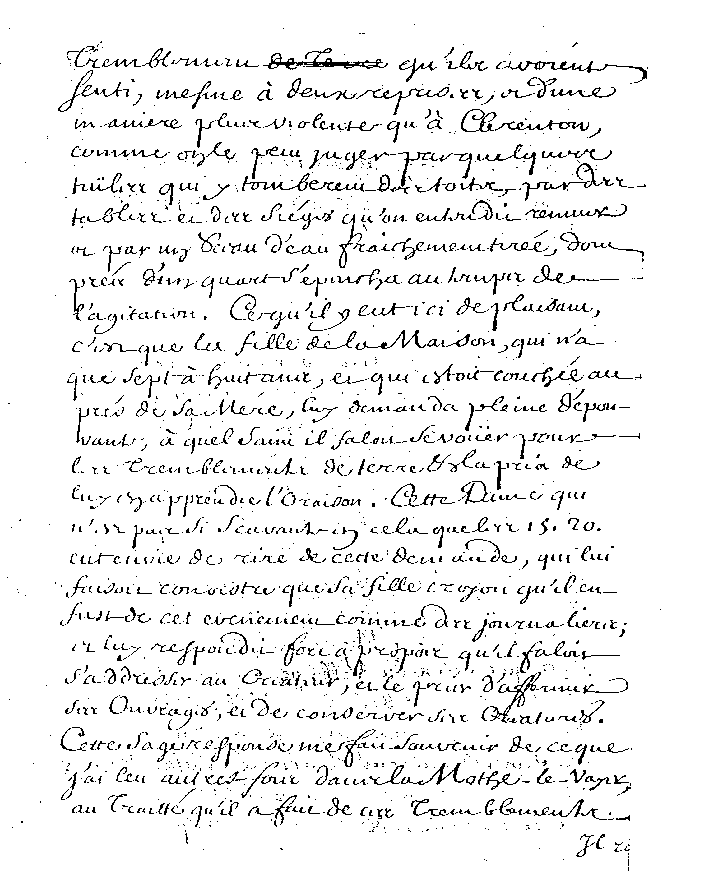 Tremblement de Terre qu'ils avoient
senti, mesme à deux reprises, et d'une
maniere plus violente qu'à Charenton,
comme on le peut juger par quelques
tuiles qui y tomberent des toits, par des
tables et des siéges qu'on entendit remuer
et par un Sceau d'eau fraischement tirée, dont
prés d'un quart s'epancha au temps de
l'agitation. Ce qu'il y eut ici de plaisant,
c'est que la fille de la Maison, qui n'a
que sept à huit ans, et qui estoit couchée au
prés de sa Mere, luy demanda pleine d'épou
vante, à quel Saint il faloit se voüer pour
les Tremblements de terre & la pria de
luy en apprendre l'Oraison. Cette Dame qui
n'est pas si scavante en cela que les 15. 20.
eut envie de rire de cette demande, qui lui
faisoit connoistre que sa fille croyoit qu'il en
fust de cet evenement comme des journaliers;
et luy respondit fort à propos qu'il faloit
s'addresser au Createur, et le prier d'affermir
ses Ouvrages, et de conserver ses Creatures.
Cette sage response me fait souvenir de ce que
j'ai leu autresfois dans la Mothe-le-Vayer,
au Traitté qu'il a fait de ces Tremblements.
Il